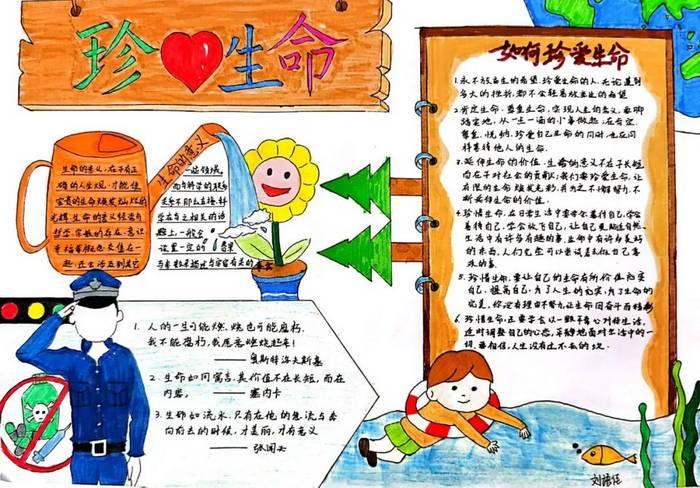 珍 生命
生命的意义
生命的意义,在于有正
确的人生观,才能使
宝贵的生命焕发灿烂的
光辉。生命的意义经常与
哲学、宗教的存在、意识
一些领域。
如何珍爱生命
1.永不放弃生的希望。珍爱生命的人,无论遭到
多大的挫折,都不会轻易放弃生的希望
2.肯定生命,尊重生命,实现人生的意义,要脚
踏实地,从一点一滴的小事做起。在肯定、
尊重、悦纳、珍爱自己生命的同时,也应同
样善待他人的生命。
3.延伸生命的价值,生命的意义不在于长短,
而在于对社会的贡献;我们要珍爱生命,让
有限的生命焕发光彩,并为之不懈努力,不
断延伸生命的价值。
4.珍惜生命,在日常生活中要学会善待自己,学会
善待自己,学会放飞自己,让自己更贴近自然。
生活中有许多有趣的事,生命中有许多美好
的东西,人们完全可以尝试着去做自己喜
欢的事。
5.珍惜生命,要让自己的生命有所价值,充实
自己,提高自己,为了人生的充实,为了生命的
完美,你没有理由不努力让生命因奋斗而精彩
6.珍惜生命,还要学会以一颗平常心对待生活,
适时调整自己的心态,平静地面对生活中的一
切,要相信,人生没有过不去的坎。
1.人的一生可能燃烧也可能腐朽,
我不能腐朽,我愿意燃烧起来!
——奥斯特洛夫斯基
2.生命如同寓言,其价值不在长短,而在
内容。——塞内卡
3.生命如流水,只有在他的急流与奔
向前去的时候,才美丽,才有意义
——张闻天